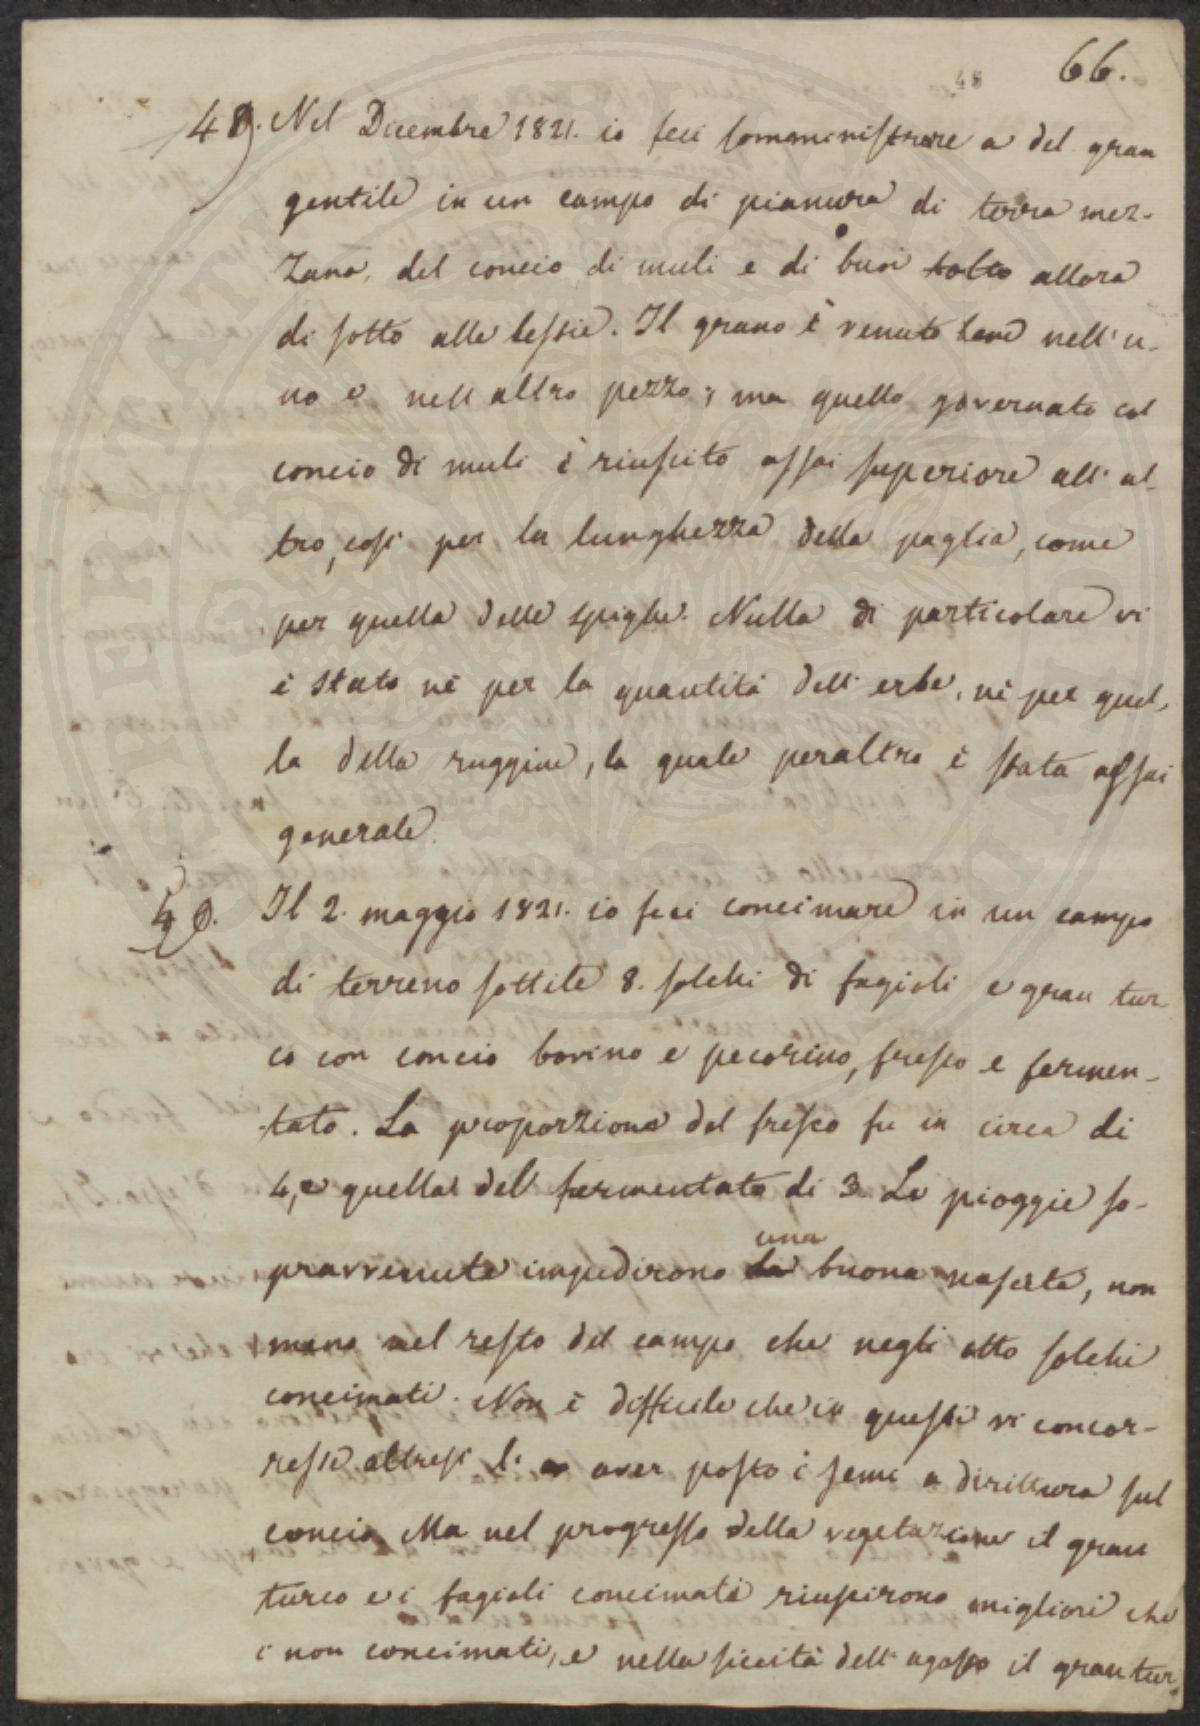 48
66.
48. Nel Dicembre 1821. io feci somministrare a del gran
gentile in un campo di pianura di terra mez-
zana, del concio di muli e di buoi tolto allora
di sotto alle bestie. Il grano è venuto bene nell' u-
no e nell altro pezzo; ma quello governato col
concio di muli è riuscito assai superiore all' al-
tro, cosi per la lunghezza della paglia, come
per quella delle spighe. Nulla di particolare vi
è stato nè per la quantità dell' erbe, nè per quel-
la della ruggine, la quale peraltro è stata assai
generale.
Il 2. maggio 1821. io feci concimare in un campo
di terreno sottile 8. solchi di fagioli e gran tur
co con concio bovino e pecorino, fresco e fermen-
tato. La proporzione del fresco fu in circa di
4, e quella del fermentato di 3. Le pioggie so-
una
pravvenute impedirono la buona nascita, non
meno nel resto del campo che negli otto solchi
concimati. Non è difficile che in questi vi concor-
resse altresi l' aver posto i semi a dirittura sul
concio. Ma nel progresso della vegetazione il gran
turco e i fagioli concimati riuscirono migliori che
i non concimati, e nella siccità dell' agosto il gran tur